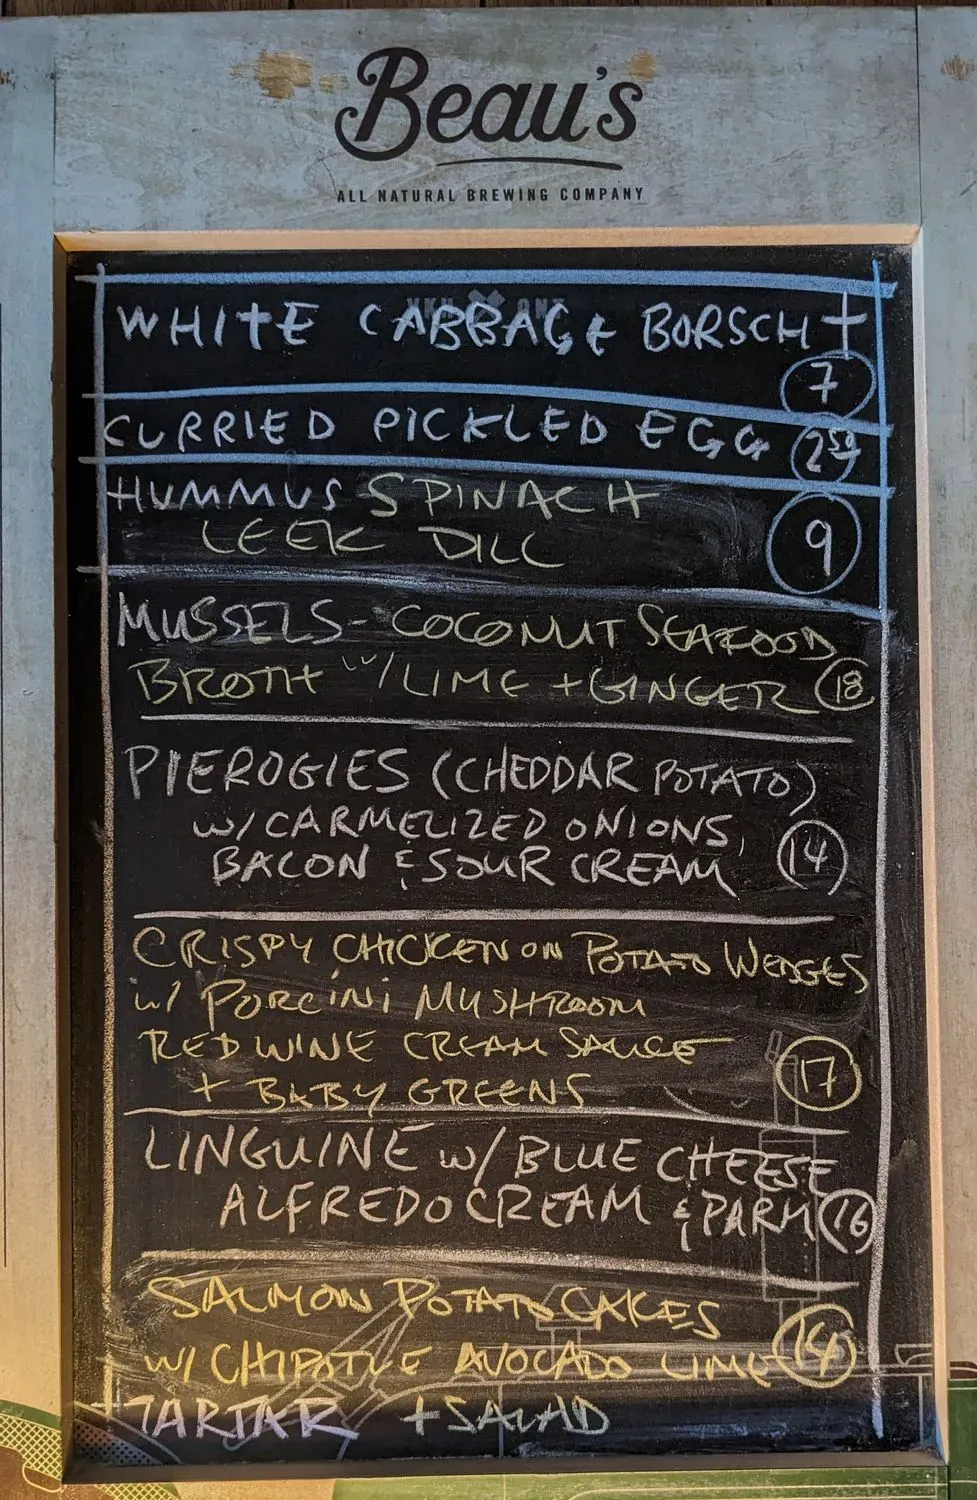 Beau's
ALL NATURAL BREWING COMPANY
WHITE CABBAGE BORSCHT
7
CURRIED PICKLED EGG 2⁵⁰
HUMMUS SPINACH
LEEK DILL 9
MUSSELS - COCONUT SEAFOOD
BROTH W/ LIME + GINGER 18
PIEROGIES (CHEDDAR POTATO)
W/ CARMELIZED ONIONS,
BACON & SOUR CREAM 14
CRISPY CHICKEN ON POTATO WEDGES
W/ PORCINI MUSHROOM
RED WINE CREAM SAUCE 17
+ BABY GREENS
LINGUINE W/ BLUE CHEESE
ALFREDO CREAM & PARM 16
SALMON POTATO CAKES
W/ CHIPOTLE AVOCADO LIME 14
TARTAR + SALAD